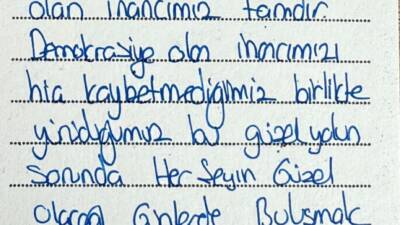 olan inancımız tamdır.
Demokrasiye olan inancımızı
hiç kaybetmediğimiz birlikte
yürüdüğümüz bu güzel yolun
sonunda Her Şeyin Güzel
olacağı Günlerde Buluşmak